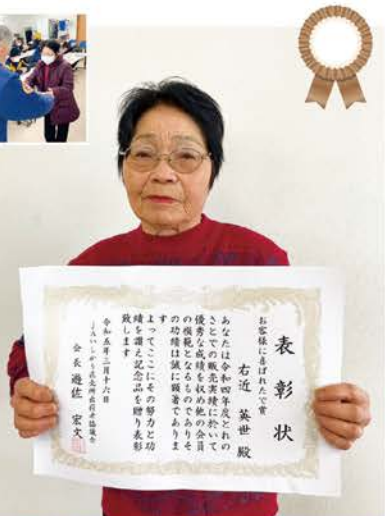 表彰状
お客様に喜ばれたで賞
右近 英世 殿
あなたは令和四年度とれの
さとでの販売実績に於いて
優秀な成績を収め他の会員
の模範となるものでありそ
の功績は誠に顕著でありま
す
よってここにその努力と功
績を讃え記念品を贈り表彰
致します
令和五年二月十六日
JAいしかり直売所出荷者協議会
会長 遊佐 宏文